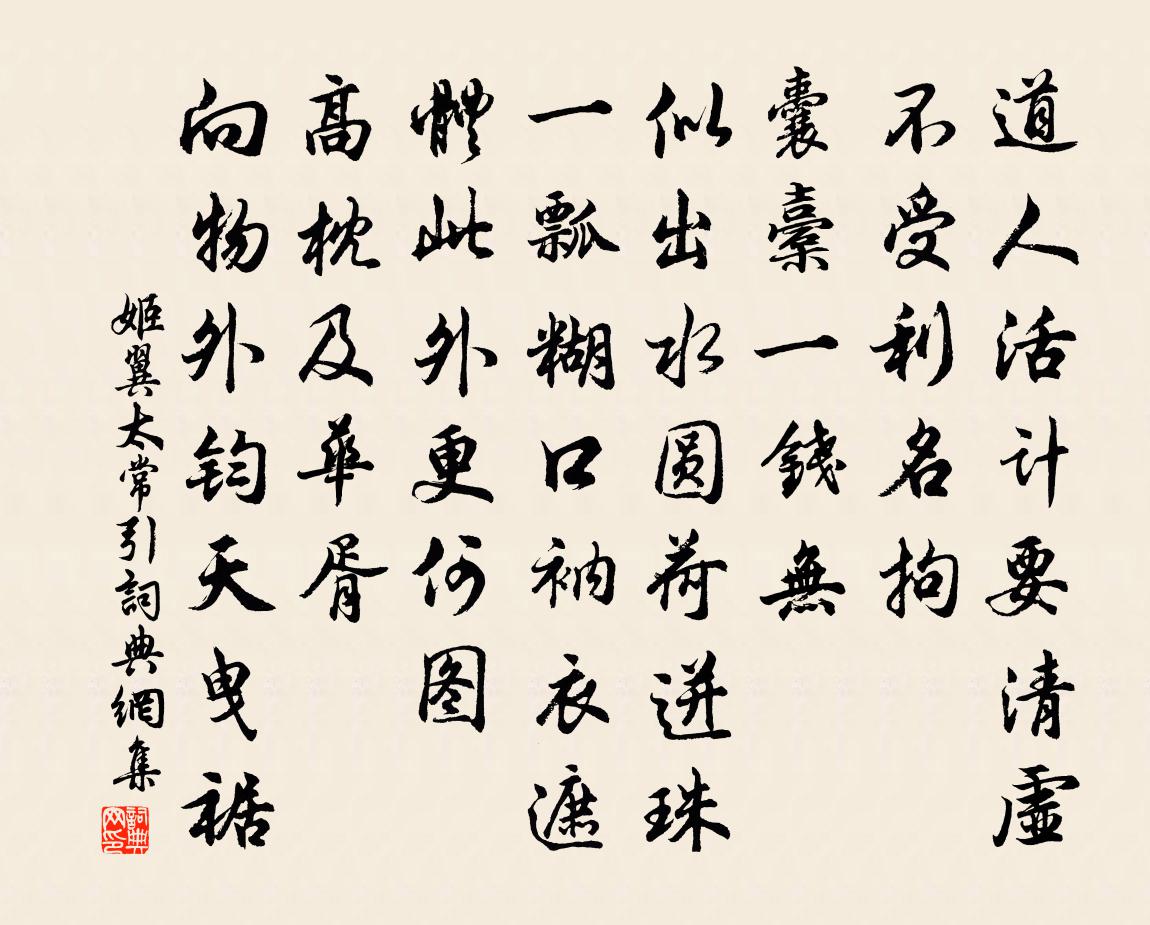 道人活计要清虚
不受利名拘
囊橐一錢無
似出水圆荷迸珠
一瓢糊口衲衣遮
體此外更何图
高枕及華胥
向物外钧天曳裾
姬翼太常引詞典網集
詞典
网印